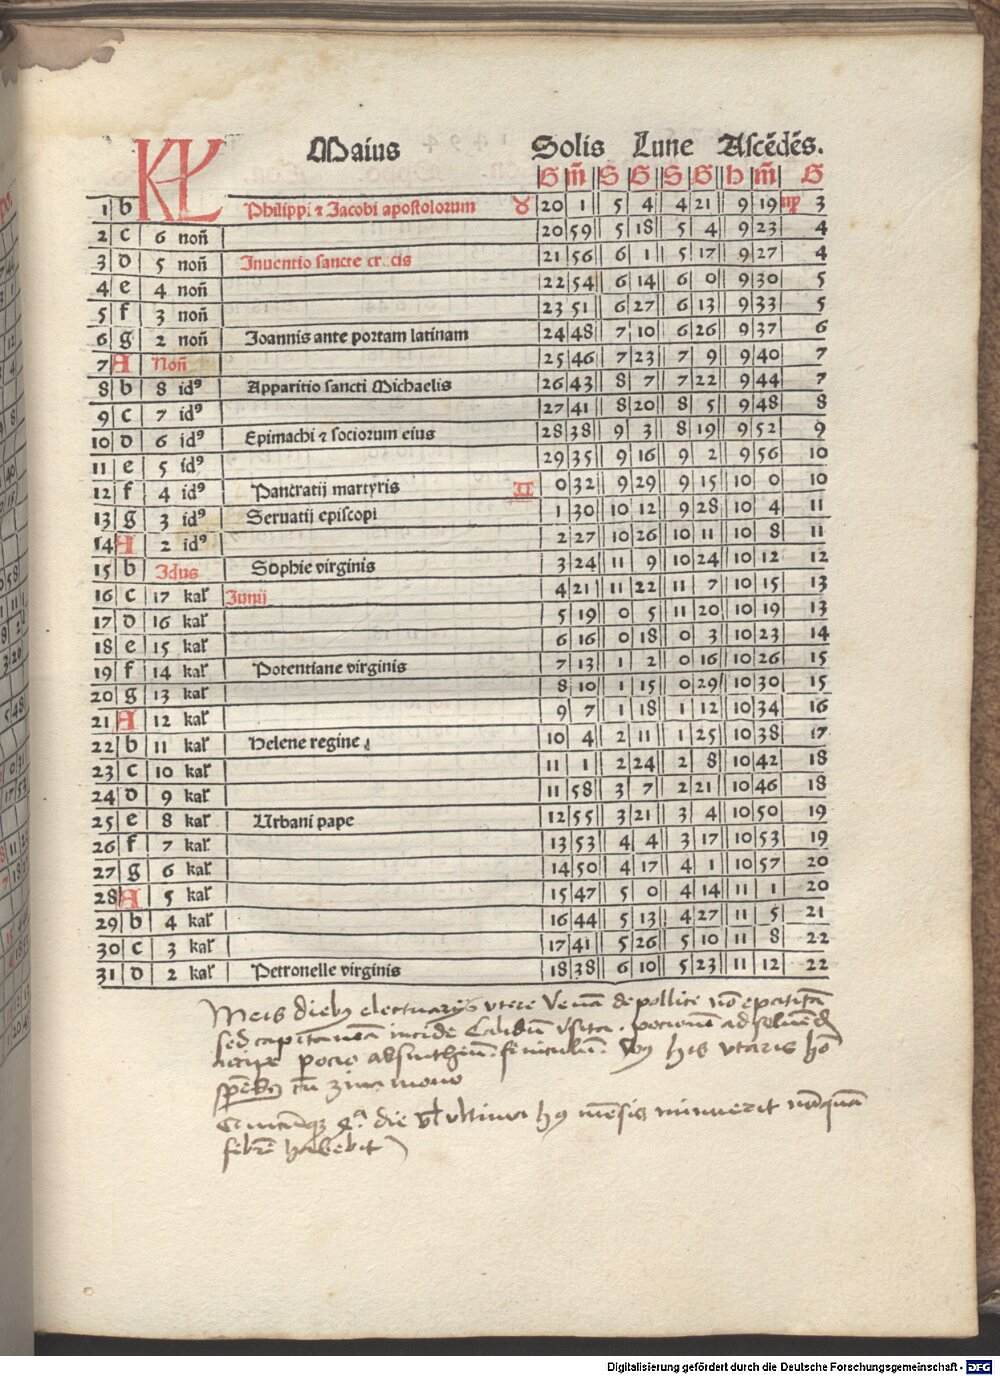 KL Maius Solis Lune Ascēdēs.
G m̄ S G S G h m̄ G
1 b Philippi ⁊ Jacobi apostolorum ♉ 20 1 5 4 4 21 9 19 ♍ 3
2 c 6 noñ 20 59 5 18 5 4 9 23 4
3 d 5 noñ Inuentio sancte crucis 21 56 6 1 5 17 9 27 4
4 e 4 noñ 22 54 6 14 6 0 9 30 5
5 f 3 noñ 23 51 6 27 6 13 9 33 5
6 g 2 noñ Joannis ante portam latinam 24 48 7 10 6 26 9 37 6
7 A Noñ 25 46 7 23 7 9 9 40 7
8 b 8 idꝰ Apparitio sancti Michaelis 26 43 8 7 7 22 9 44 7
9 c 7 idꝰ 27 41 8 20 8 5 9 48 8
10 d 6 idꝰ Epimachi ⁊ sociorum eius 28 38 9 3 8 19 9 52 9
11 e 5 idꝰ 29 35 9 16 9 2 9 56 10
12 f 4 idꝰ Pancratij martyris ♊ 0 32 9 29 9 15 10 0 10
13 g 3 idꝰ Seruatij episcopi 1 30 10 12 9 28 10 4 11
14 A 2 idꝰ 2 27 10 26 10 11 10 8 11
15 b Idus Sophie virginis 3 24 11 9 10 24 10 12 12
16 c 17 kal̄ Junij 4 21 11 22 11 7 10 15 13
17 d 16 kal̄ 5 19 0 5 11 20 10 19 13
18 e 15 kal̄ 6 16 0 18 0 3 10 23 14
19 f 14 kal̄ Potentiane virginis 7 13 1 2 0 16 10 26 15
20 g 13 kal̄ 8 10 1 15 0 29 10 30 15
21 A 12 kal̄ 9 7 1 18 1 12 10 34 16
22 b 11 kal̄ Helene regine 10 4 2 11 1 25 10 38 17
23 c 10 kal̄ 11 1 2 24 2 8 10 42 18
24 d 9 kal̄ 11 58 3 7 2 21 10 46 18
25 e 8 kal̄ Urbani pape 12 55 3 21 3 4 10 50 19
26 f 7 kal̄ 13 53 4 4 3 17 10 53 19
27 g 6 kal̄ 14 50 4 17 4 1 10 57 20
28 A 5 kal̄ 15 47 5 0 4 14 11 1 20
29 b 4 kal̄ 16 44 5 13 4 27 11 5 21
30 c 3 kal̄ 17 41 5 26 5 10 11 8 22
31 d 2 kal̄ Petronelle virginis 18 38 6 10 5 23 11 12 22
dieb9 electuarijs vtere Venā de pollice nō
sed capitaneā incide Calidū vsita. ad
accipe absinthiū. feniculū. his vtaris
cū
die vl vltima mēsis minuerit nūquā
febrē habebit
Digitalisierung gefördert durch die Deutsche Forschungsgemeinschaft - DFG